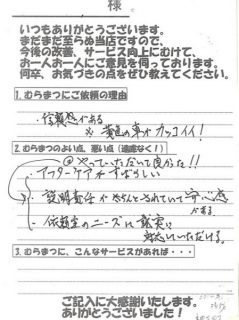 様
いつもありがとうございます。
まだまだ至らぬ当店ですので、
今後の改善、サービス向上にむけて、
お一人お一人にご意見を伺っております。
何卒、お気づきの点をぜひ教えてください。
1.むらまつにご依頼の理由
・信頼感がある
※黄色の車がカッコイイ!
2.むらまつのよい点、悪い点(遠慮なく!)
やっていただいて良かった!!
・アフターケアがすばらしい
・説明責任がきちんとされていて安心点
がある
・依頼主のニーズに誠実に
対応いただける。
3.むらまつに、こんなサービスがあれば・・・
ご記入に大感謝いたします。
ありがとうございました!